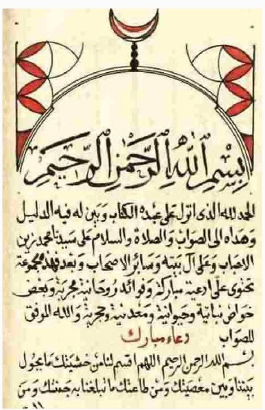 بسم الله الرحمن الرحيم
الحمد لله الذى انزل على عبده الكتاب وبين له فيه الدليل
وهداه الى الصواب والصلاة والسلام على سيدنا محمد زين
الاصحاب وعلى آل بيته وسائر الاصحاب وبعد فهذه مجموعة
تحتوى على ادعية مباركة وفوائد روحانية مجربة وبعض
خواص نباتية وحيوانية ومعدنية وحجرية والله الموفق
للصواب دعاء مبارك
بسم الله الرحمن الرحيم اللهم اقسم لنا من خشيتك ما يحول
بيننا وبين معصيتك ومن طاعتك ما تبلغنا به جنتك ومن